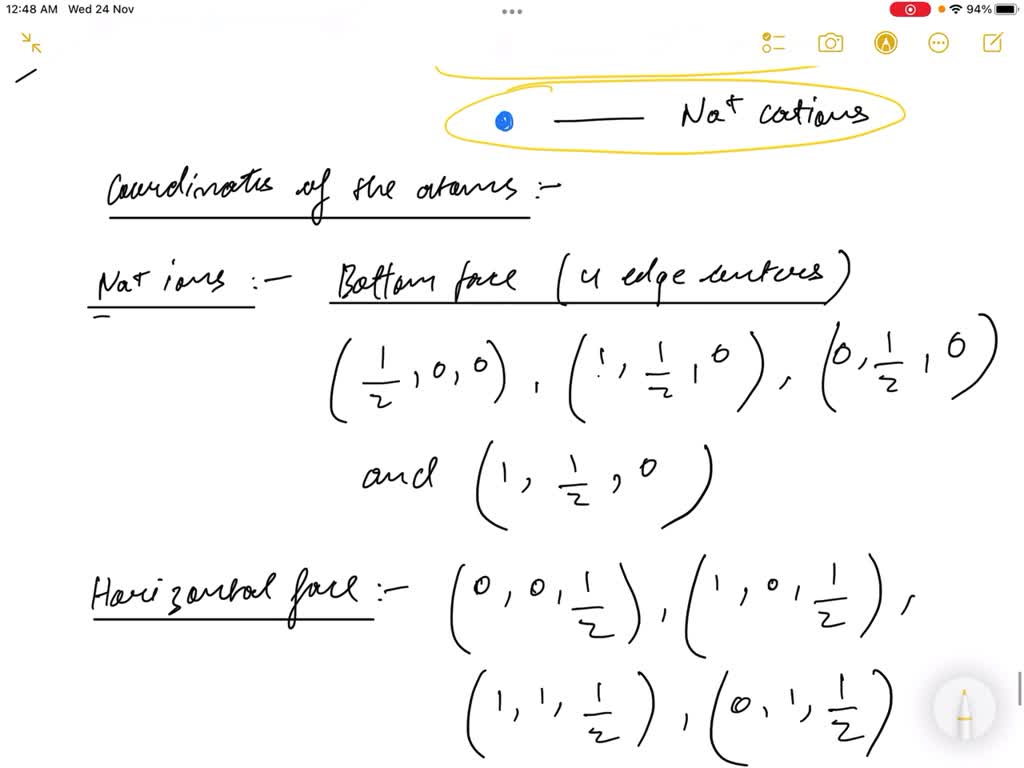 12:48 AM Wed 24 Nov 94%
Na+ cations
Coordinates of the atoms :-
Na+ ions :- Bottom face (4 edge centers)
(1/2, 0, 0), (1, 1/2, 0), (0, 1/2, 0)
and (1, 1/2, 0)
Horizontal face :- (0, 0, 1/2), (1, 0, 1/2),
(1, 1, 1/2), (0, 1, 1/2)